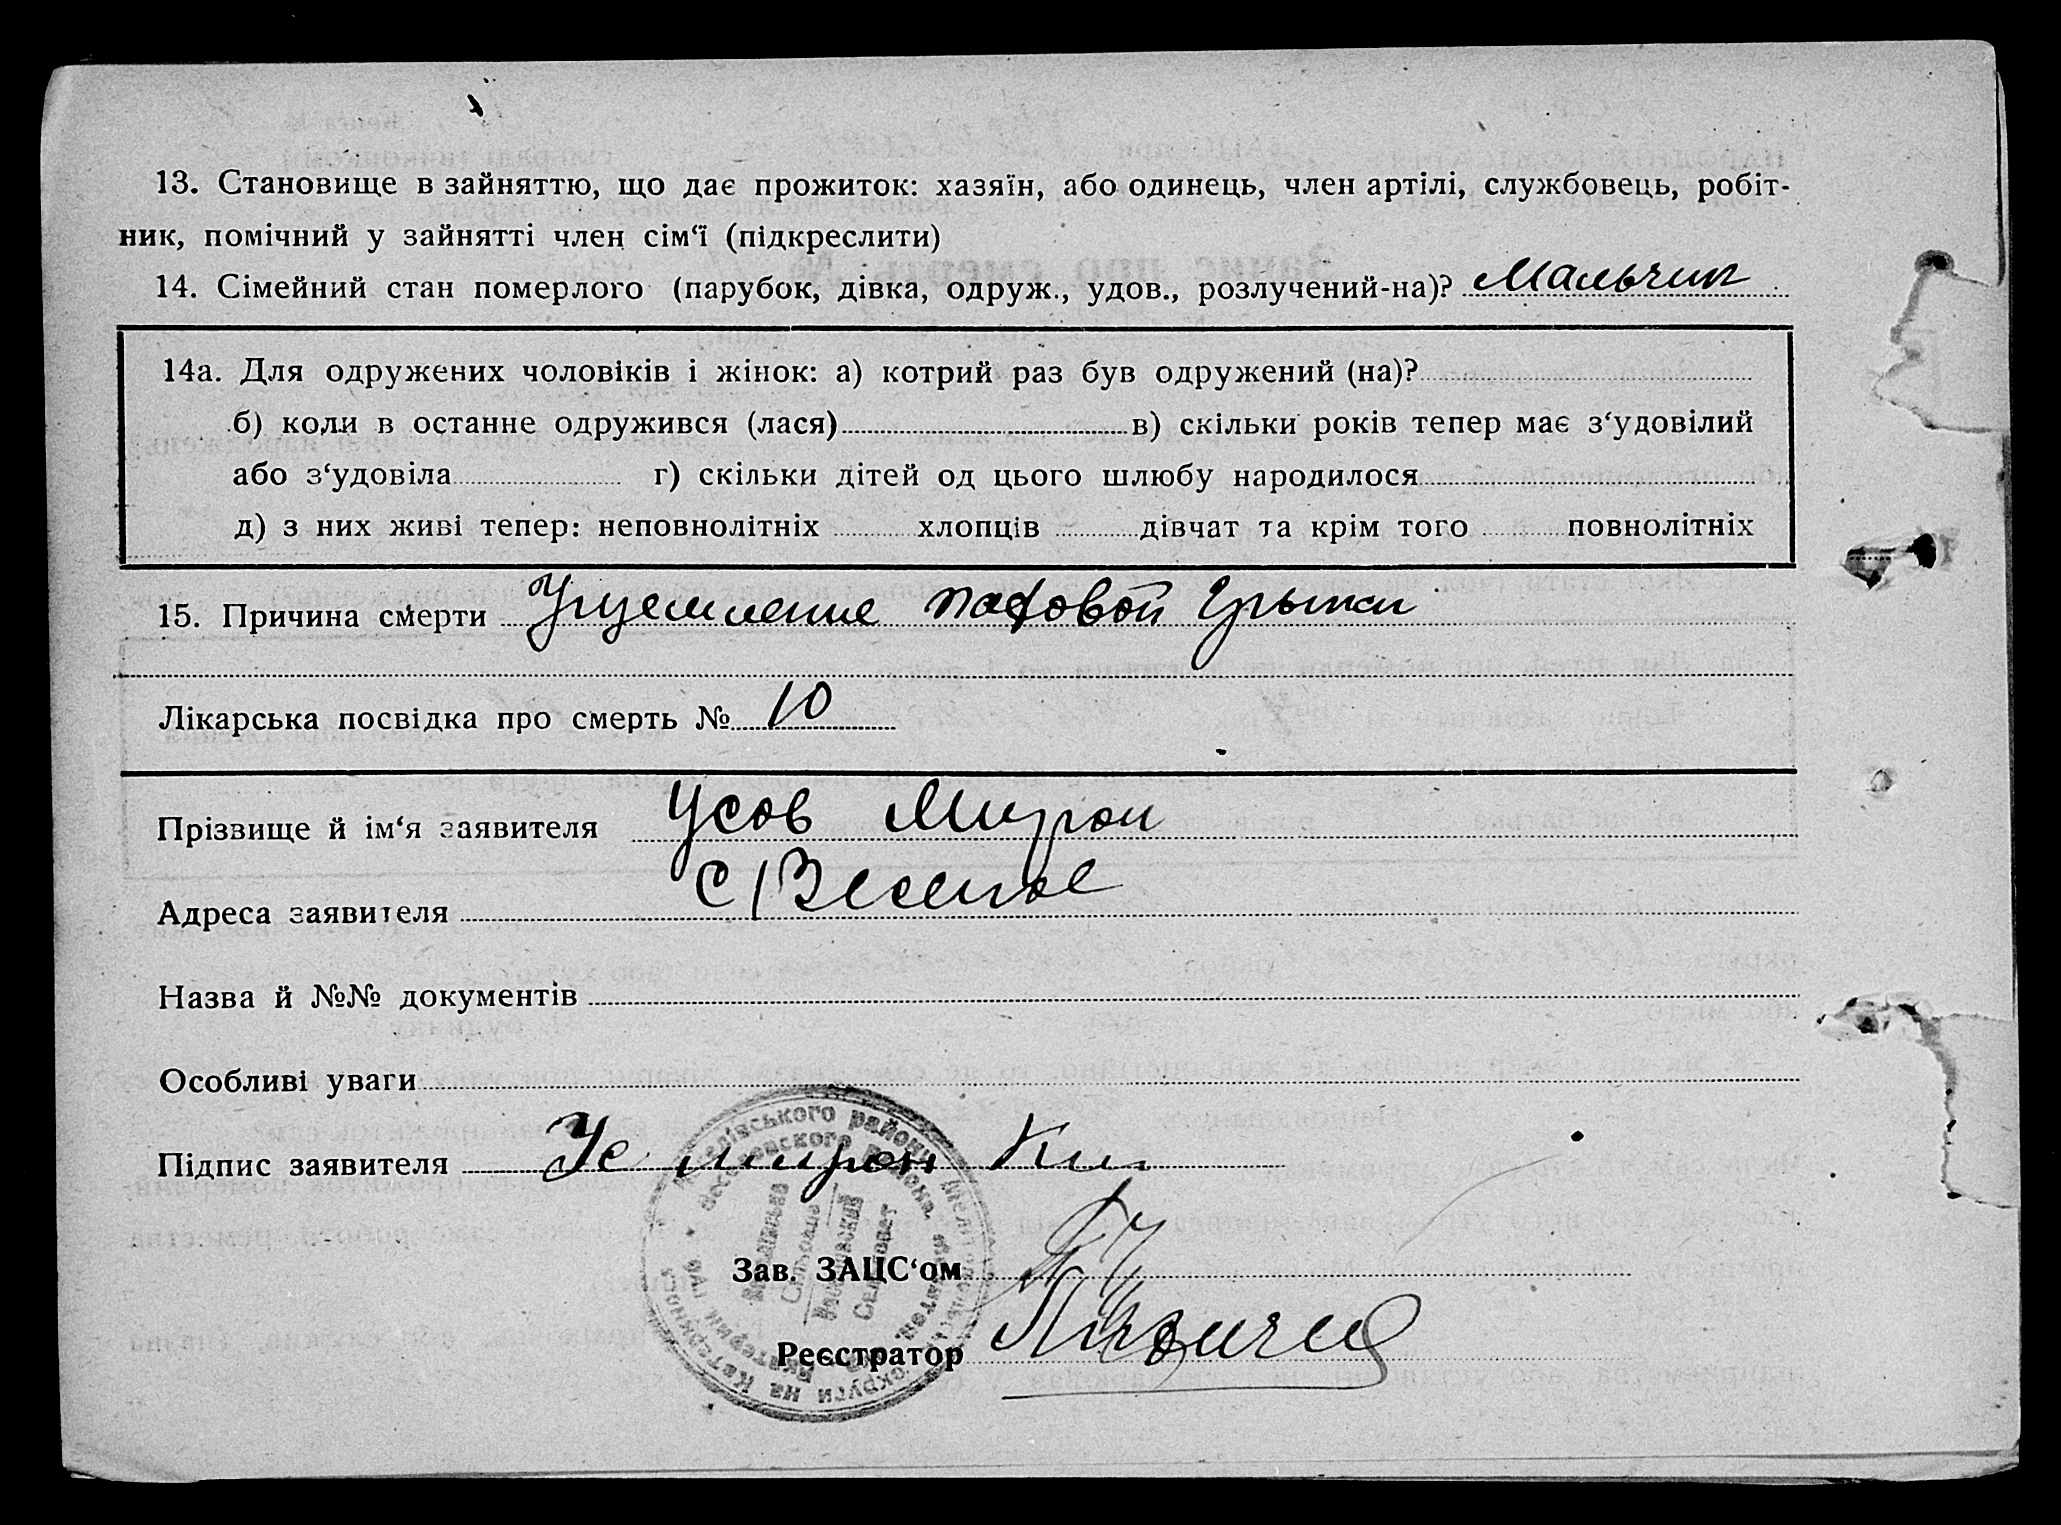 13. Становище в зайняттю, що дає прожиток: хазяїн, або одинець, член артілі, службовець, робіт-
ник, помічний у зайнятті член сім‘ї (підкреслити)
14. Сімейний стан померлого (парубок, дівка, одруж., удов., розлучений-на)? Мальчик
14а. Для одружених чоловіків і жінок: а) котрий раз був одружений (на)?
б) коли в останне одружився (лася) в) скільки років тепер має з‘удовілий
або з‘удовіла г) скільки дітей од цього шлюбу народилося
д) з них живі тепер: неповнолітніх хлопців дівчат та крім того повнолітніх
15. Причина смерти Ущемление паховой грыжи
Лікарська посвідка про смерть № 10
Прізвище й ім‘я заявителя Усов Мирон
Адреса заявителя С Веселое
Назва й №№ документів
Особливі уваги
Підпис заявителя Ус Мирон
Зав. ЗАЦС‘ом
Реєстратор